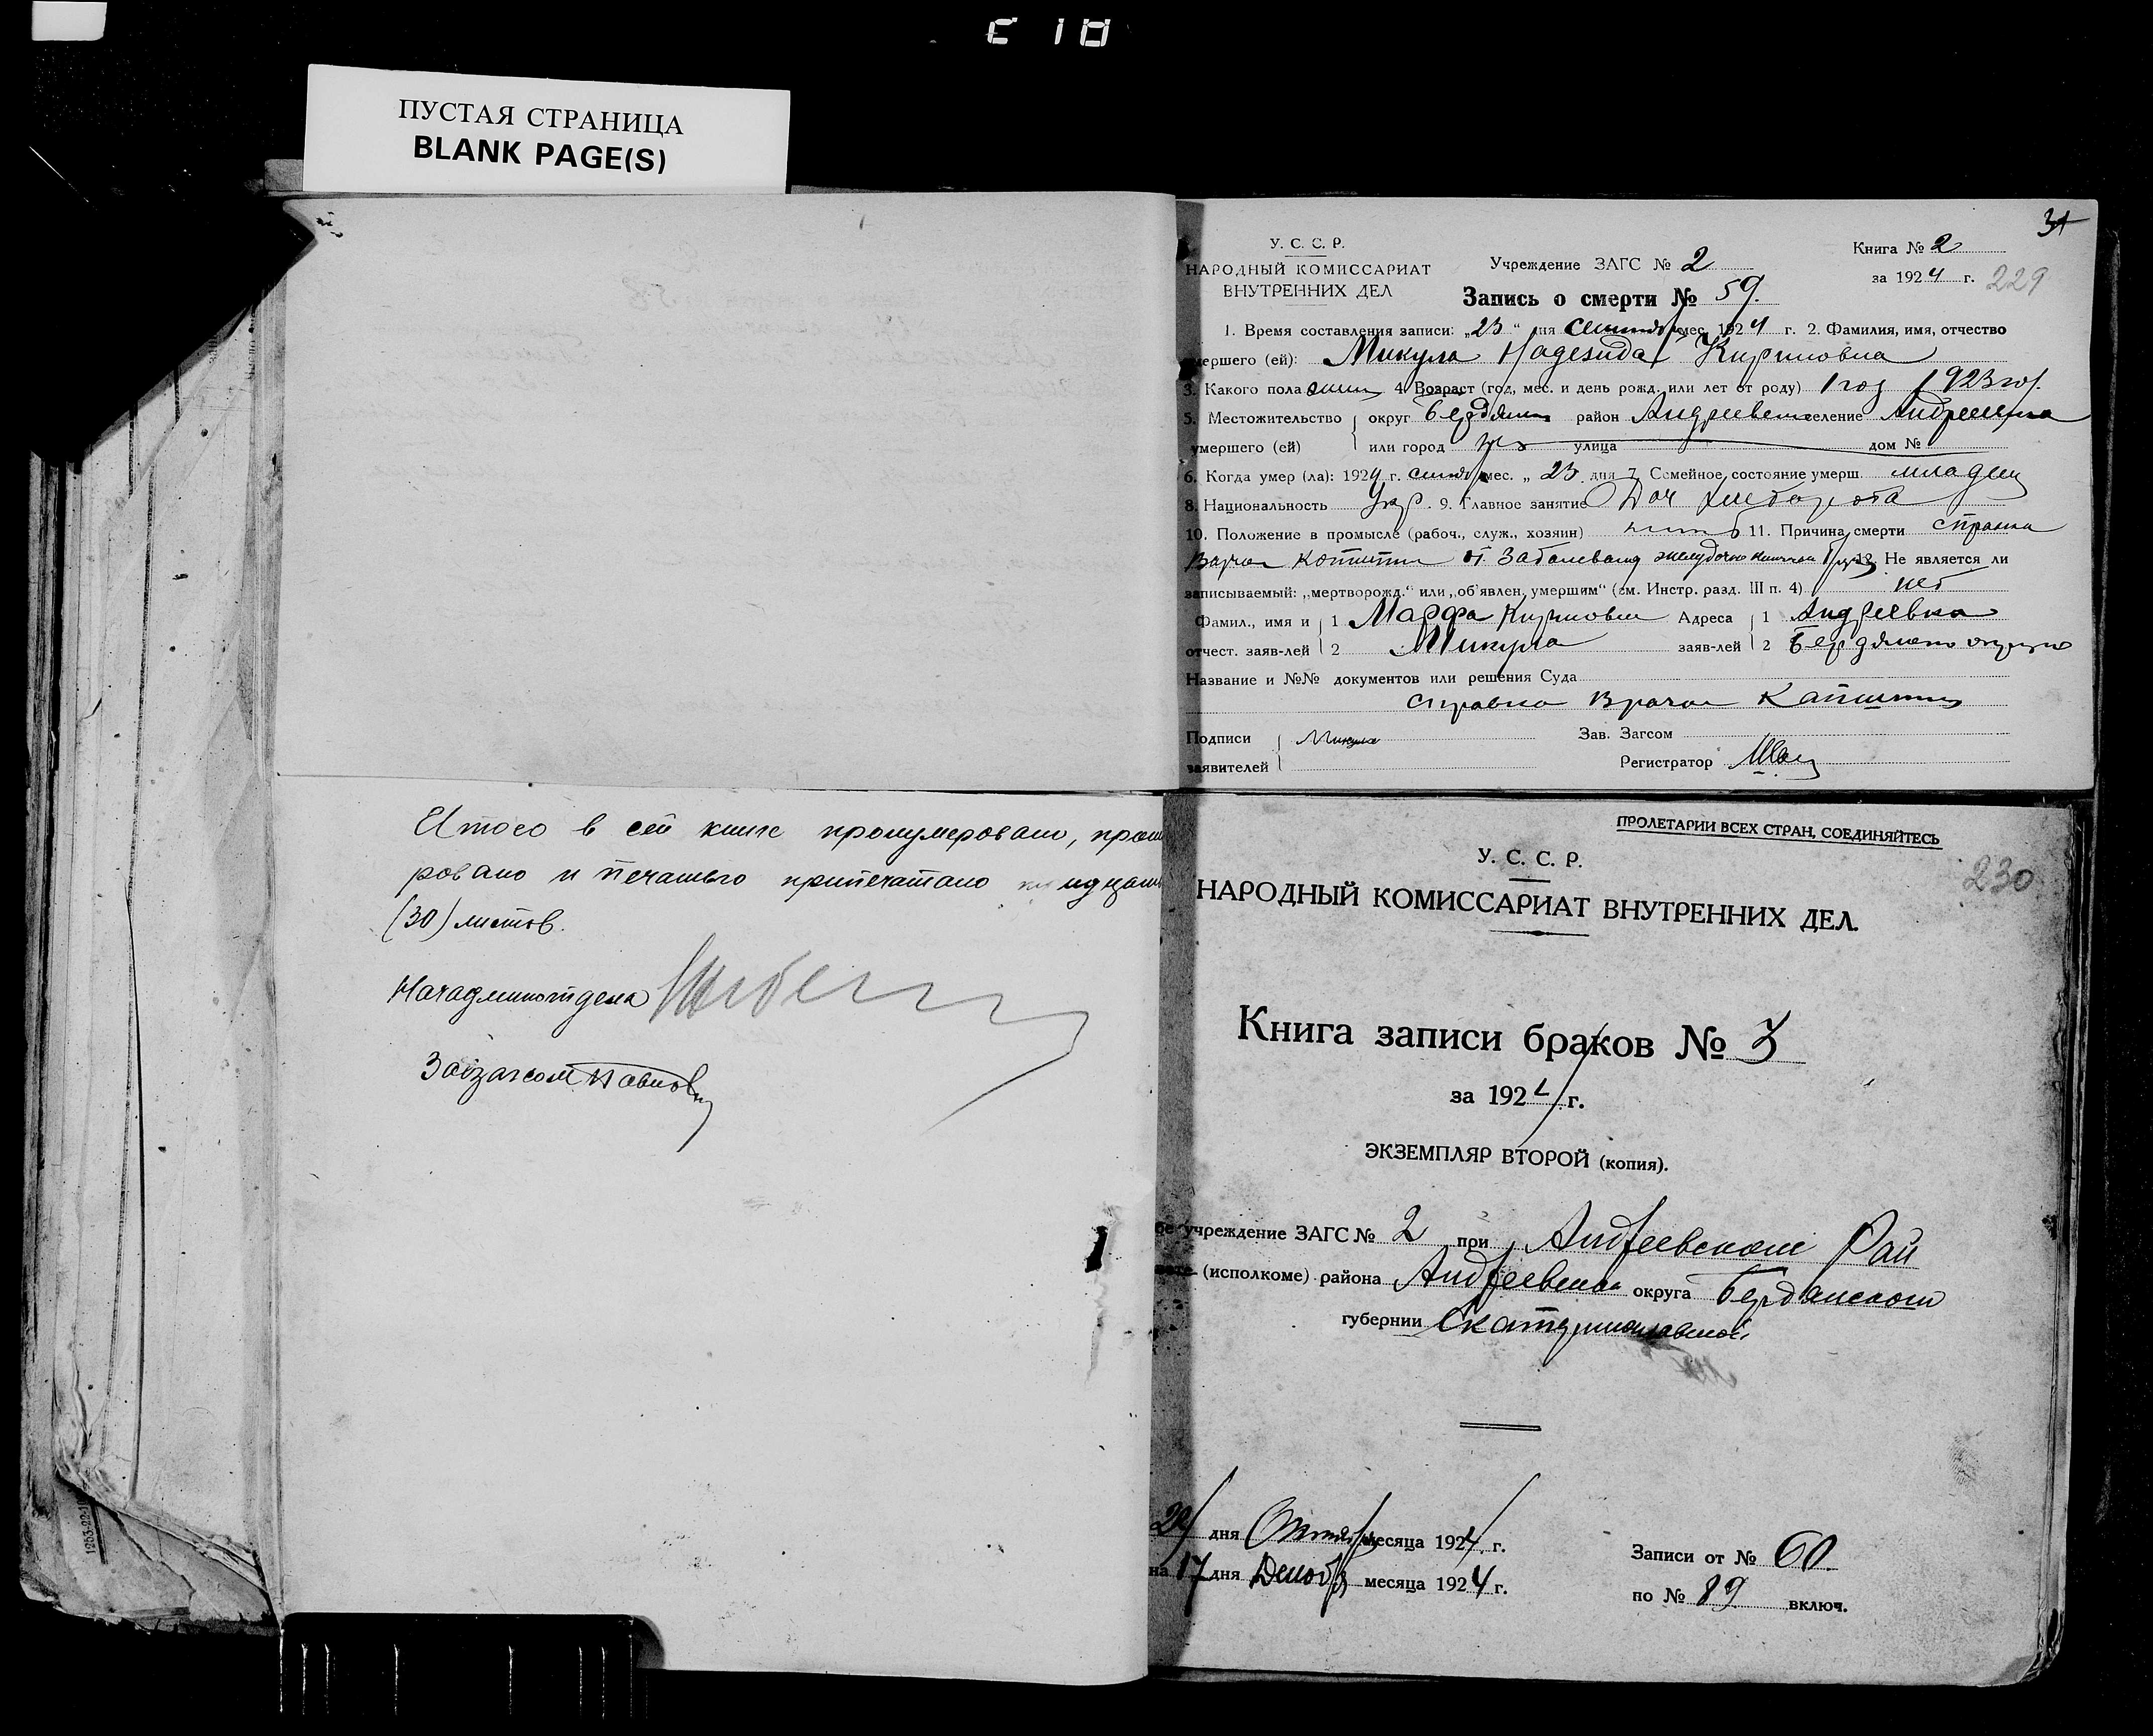 E 10
ПУСТАЯ СТРАНИЦА
BLANK PAGE(S)
31
У. С. С. Р.
НАРОДНЫЙ КОМИССАРИАТ
ВНУТРЕННИХ ДЕЛ
Учреждение ЗАГС № 2
Книга № 2
за 1924 г. 229
Запись о смерти № 59.
1. Время составления записи: „23“ дня мес. 1924 г. 2. Фамилия, имя, отчество
умершего (ей): Микула Надежда Кириловна
3. Какого пола жен 4. Возраст (год, мес. и день рожд. или лет от роду) 1 год 1923 год.
5. Местожительство округ Бердянск район Андреевск селение Андреевка
умершего (ей) или город улица дом №
6. Когда умер (ла): 1924 г. мес. „ 23 дня 7. Семейное состояние умерш. младенец
8. Национальность Укр. 9. Главное занятие Доч хлебороба
10. Положение в промысле (рабоч., служ., хозяин) 11. Причина смерти справка
Врача от заболевания желудочно 12. Не является ли
записываемый: „мертворожд.“ или „об'явлен. умершим“ (см. Инстр. разд. III п. 4) нет
Фамил., имя и 1 Марфа Кириловна Адреса 1 Андреевка
отчест. заяв-лей 2 Микула заяв-лей 2 Бердянского округа
Название и №№ документов или решения Суда
справка Врача
Подписи Микула Зав. Загсом
заявителей Регистратор
Итого в сей книге пронумеровано, прошну
ровано и печатью припечатано тридцать
(30) листов.
Начадминотдела
Завзагсом
ПРОЛЕТАРИИ ВСЕХ СТРАН, СОЕДИНЯЙТЕСЬ
У. С. С. Р.
230
НАРОДНЫЙ КОМИССАРИАТ ВНУТРЕННИХ ДЕЛ.
Книга записи браков № 3
за 1924 г.
ЭКЗЕМПЛЯР ВТОРОЙ (копия).
учреждение ЗАГС № 2 при Андреевском Рай
(исполкоме) района Андреевского округа Бердянского
губернии Екатеринославской
дня месяца 1924 г.
на 17 дня Декабр месяца 1924 г.
Записи от № 60.
по № 89 включ.